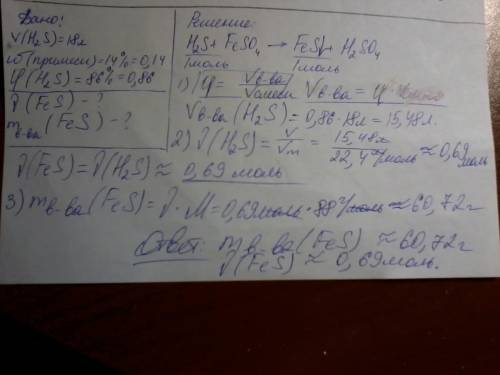 Дано:
V(H₂S)=18л
ω(примеси)=14%=0,14
φ(H₂S)=86%=0,86
ν(FeS)-?
m в-ва (FeS)-?
Решение:
H₂S+FeSO₄→FeS↓+H₂SO₄
1моль 1моль
1) φ= Vв-ва/Vсмеси Vв-ва= φ·
Vв-ва(H₂S)=0,86·18л=15,48л.
2) ν(H₂S)= V/Vm = 15,48л/22,4л/моль ≈0,69 моль
ν(FeS)=ν(H₂S)≈ 0,69 моль
3) m в-ва(FeS)=ν·M=0,69моль·88г/моль≈60,72г
Ответ: m в-ва(FeS)≈60,72г
ν(FeS)≈0,69моль.